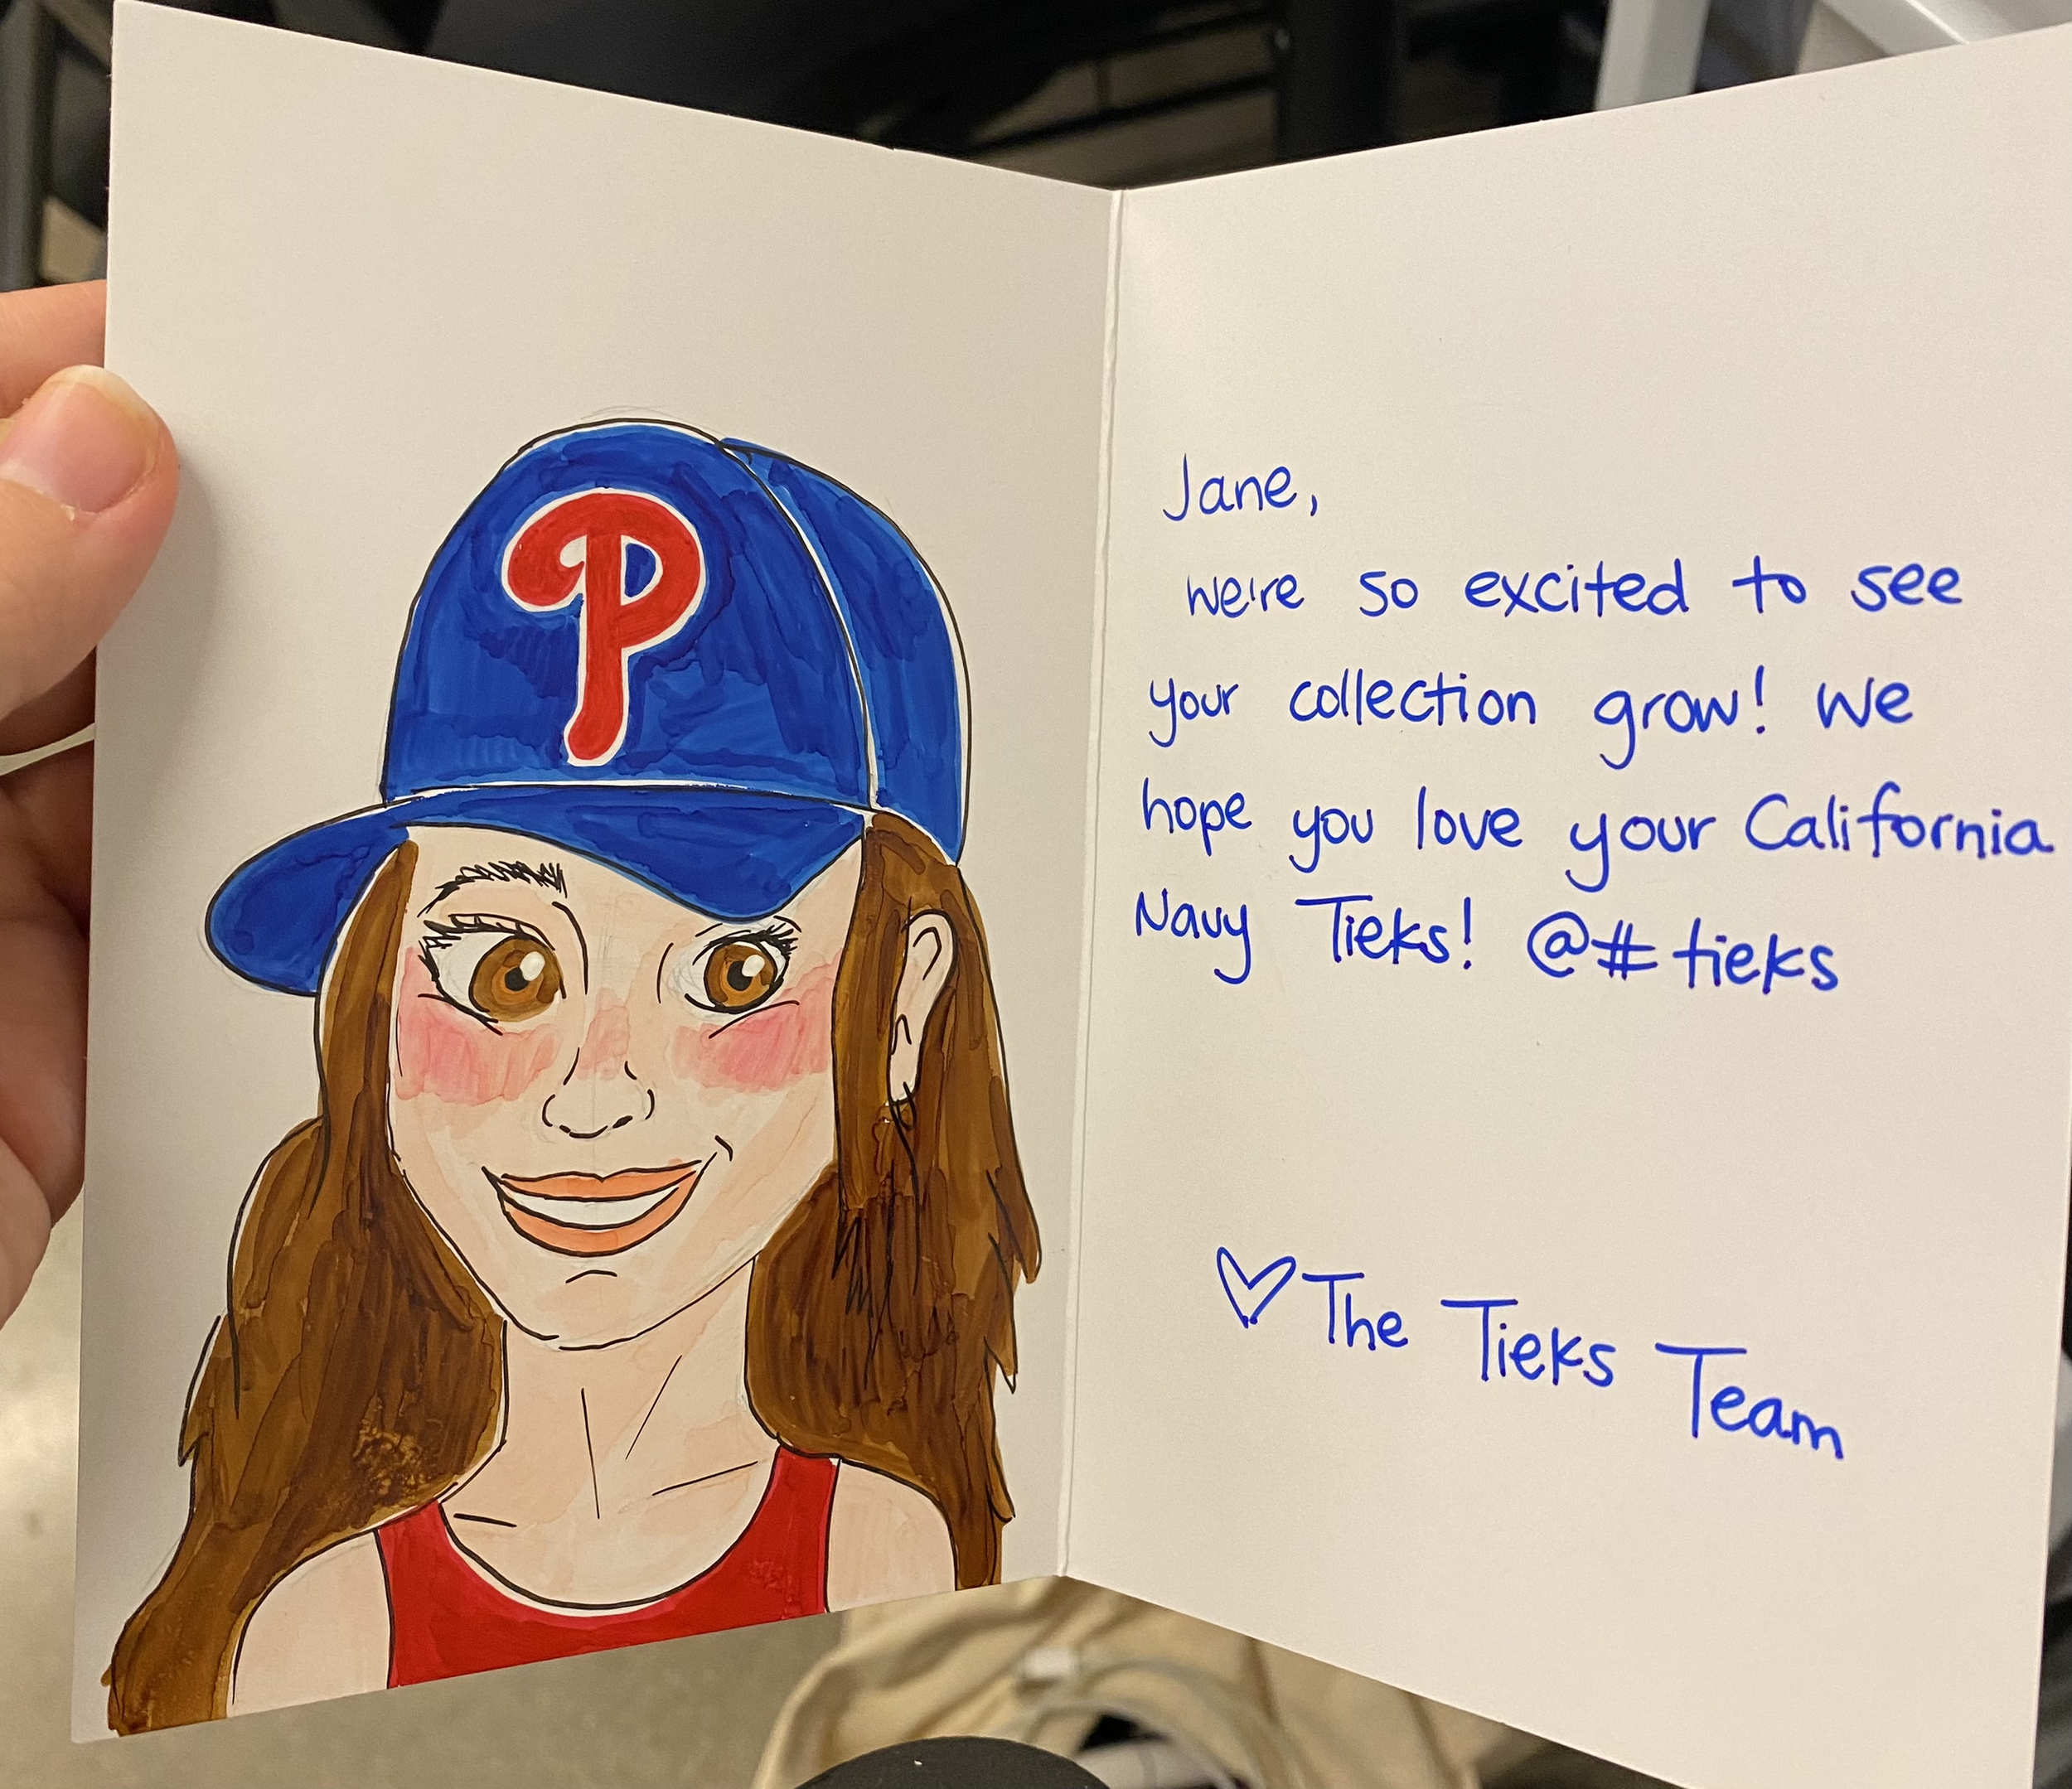 P
Jane,
we're so excited to see
your collection grow! We
hope you love your California
Navy Tieks! @#tieks
♡The Tieks Team